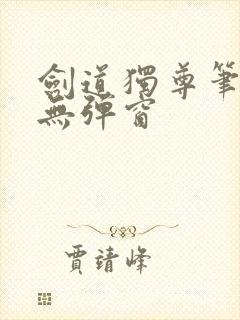 劍道獨尊筆
無彈窗
賈靖峰